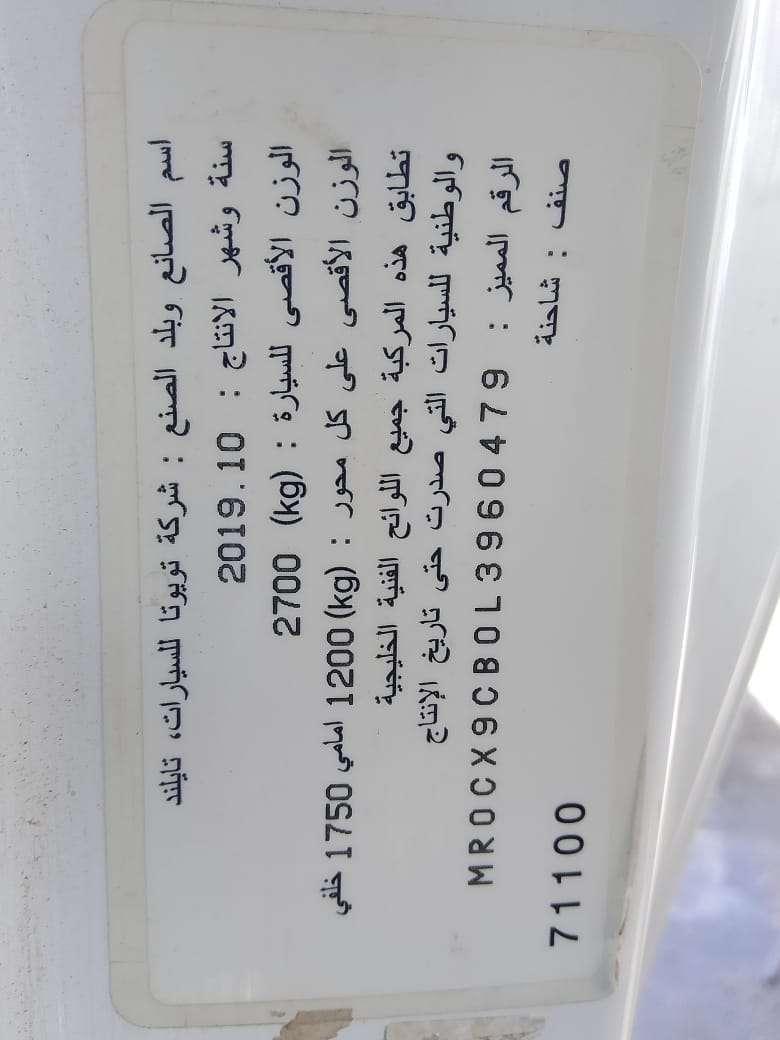 اسم الصانع وبلد الصنع : شركة تويوتا للسيارات، تايلند
سنة وشهر الانتاج : 2019.10
الوزن الأقصى للسيارة : (kg) 2700
الوزن الأقصى على كل محور : (kg) 1200 امامي 1750 خلفي
تطابق هذه المركبة جميع اللوائح الفنية الخليجية
والوطنية للسيارات التي صدرت حتى تاريخ الإنتاج
الرقم المميز : MR0CX9CB0L3960479
صنف : شاحنة
71100